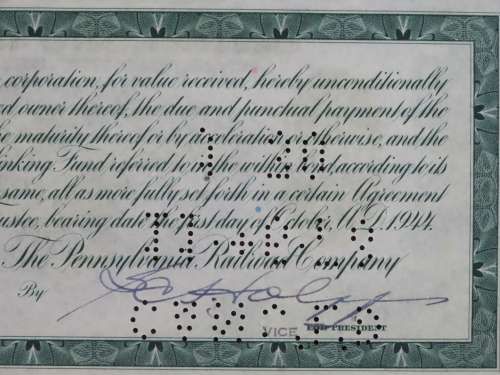 corporation, for value received, hereby unconditionally
owner thereof, the due and punctual payment of the
maturity thereof or by acceleration or otherwise, and the
Sinking Fund referred to in the within bond, according to its
same, all as more fully set forth in a certain Agreement
bearing date the first day of October, A.D. 1944.
The Pennsylvania Railroad Company
By
VICE PRESIDENT